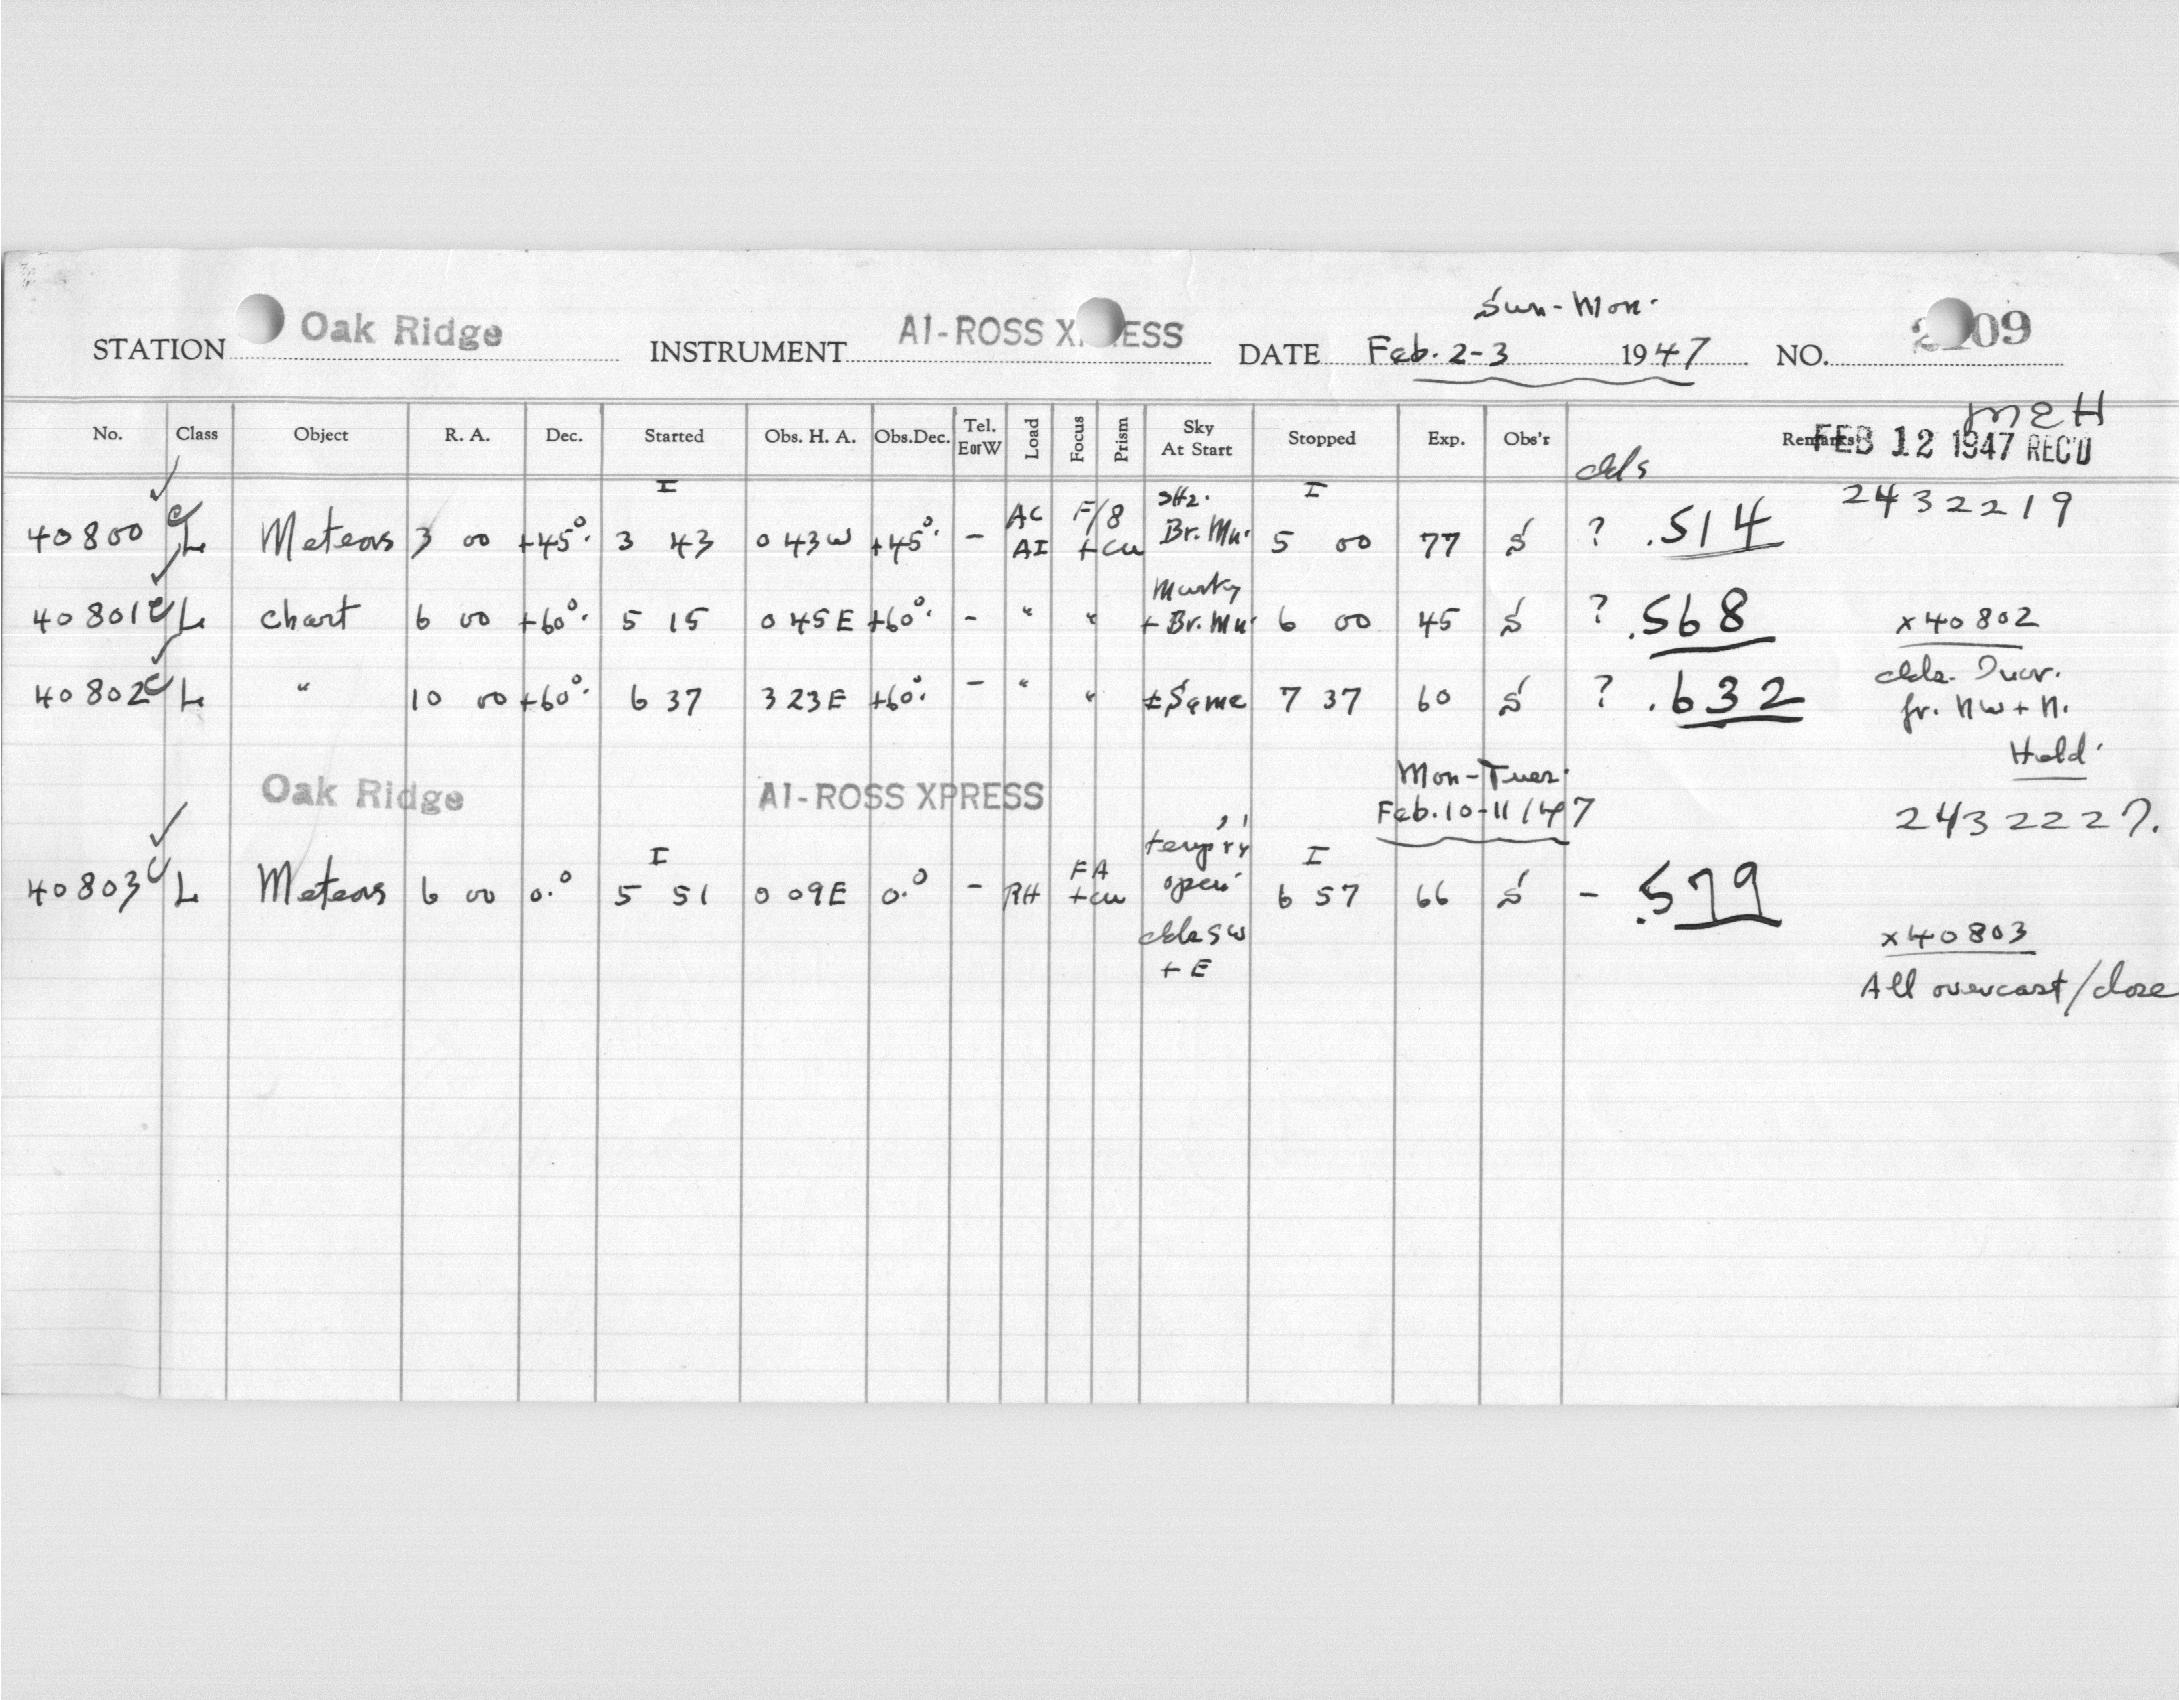 Sun-Mon.
STATION Oak Ridge INSTRUMENT AI-ROSS X ESS DATE Feb. 2-3 1947 NO. 09
MEH
No. Class Object R. A. Dec. Started Obs. H. A. Obs.Dec. Tel. E or W Load Focus Prism Sky At Start Stopped Exp. Obs'r Remarks FEB 12 1947 REC'D
clds
I I 2432219
40800 L Meteors 3 00 +45°. 3 43 0 43W +45°. - AC AI F/8 +cu Br. Mn. 5 00 77 S ? .514
40801 L Chart 6 00 +60°. 5 15 0 45E +60°. - " " Murky + Br. Mn. 6 00 45 S ? .568 x40802
40802 L " 10 00 +60°. 6 37 3 23E +60°. - " " ± Same 7 37 60 S ? .632 clds.
fr. NW + N.
Hold.
Oak Ridge AI-ROSS XPRESS Mon-Tues.
Feb. 10-11/47 2432227.
I I
40803 L Meteors 6 00 0.° 5 51 0 09E 0.° - RH FA +cu temp'r'y open 6 57 66 S - .579
clds SW x40803
+ E
All overcast/close